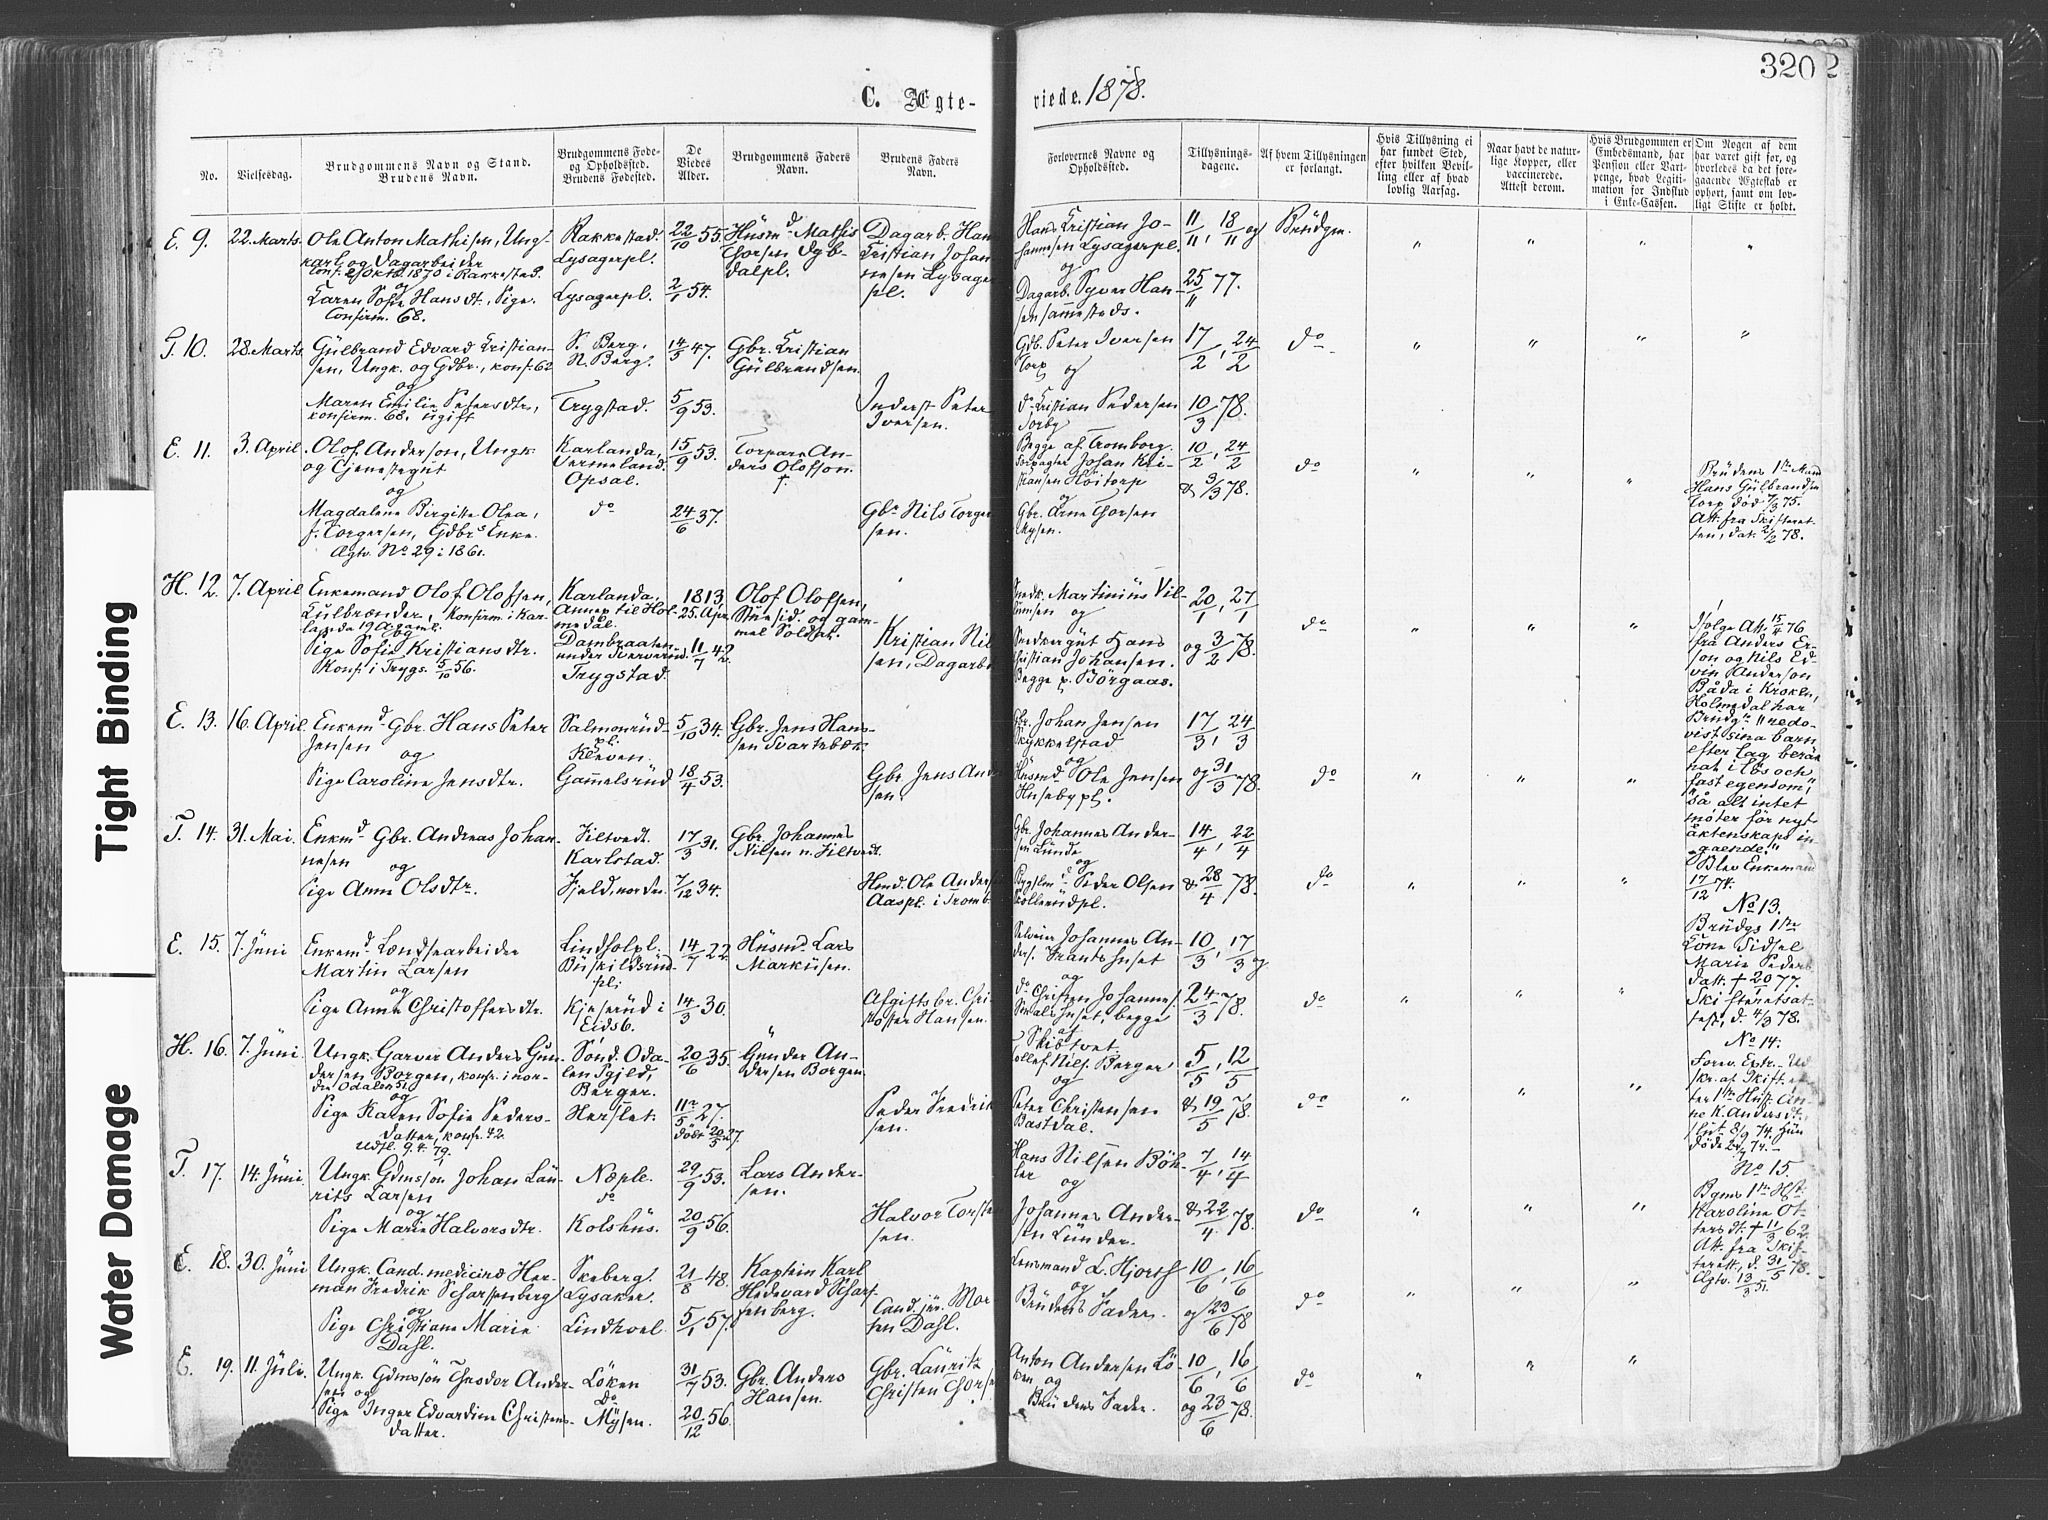 320
C. Ægte-
viede. 1878.
No.
Vielsesdag.
Brudgommens Navn og Stand.
Brudens Navn.
Brudgommens Føde-
og Opholdssted.
Brudens Fødested.
De
Viedes
Alder.
Brudgommens Faders
Navn.
Brudens Faders
Navn.
Forlovernes Navne og
Opholdssted.
Tillysnings-
dagene.
Af hvem Tillysningen
er forlangt.
Hvis Tillysning ei
har fundet Sted,
efter hvilken Bevil-
ling eller af hvad
lovlig Aarsag.
Naar havt de natur-
lige Kopper, eller
vaccinerede.
Attest derom.
Hvis Brudgommen er
Embedsmand, har
Pension eller Vart-
penge, hvad Legiti-
mation for Indskud
i Enke-Cassen.
Om Nogen af dem
har været gift før, og
hvorledes da det fore-
gaaende Ægteskab er
ophørt, samt om lov-
ligt Skifte er holdt.
E. 9. 22. Marts.
Ole Anton Mathisen, Ung-
karl og Dagarbeider
Conf. 2/Oktb. 1870 i Rakkestad.
og
Karen Sofie Hansdt., Pige.
Confirm. 68.
Rakkestad.
Lysagerpl.
Lysagerpl.
22/10 55.
2/1 54.
Husmd. Mathis
Thorsen Dyb-
dalpl.
Dagarb. Han
Kristian Johan
nesen Lysager
pl.
Hans Kristian Jo-
hannesen Lysagerpl.
og
Dagarb. Syver Han-
sen sammesteds.
11/11, 18/11 og
25/11 77.
Brudgm.
T. 10. 28. Marts.
Gulbrand Edvard Kristian-
sen, Ungk. og Gdbr., konf. 62
og
Maren Emilie Petersdtr,
konfirm. 68, ugift
S. Berg,
N. Berg.
Trygstad.
14/5 47.
5/9 53.
Gbr. Kristian
Gulbrandsen.
Inderst Peter
Iversen.
Gdb. Peter Iversen
Torp og
do Kristian Pedersen
Torby
17/2, 24/2
10/3 78.
do
E. 11. 3. April.
Olof Anderson, Ungk
og Tjenestegut
og
Magdalene Birgitte Olea,
f. Torgersen, Gdbrs Enke.
Ægtv. No 29 i 1861.
Karlanda,
Vermeland.
Opsal.
do
15/9 53.
24/6 37.
Torpare An-
ders Olofson.
†.
Gbr Nils Torger
sen.
Begge af Tromborg.
Forpagter Johan Kri-
stiansen Høitorp
og
Gbr. Arne Thorsen
Mysen.
10/2, 24/2
& 3/3 78.
do
Brudens 1ste Mand
Hans Gulbrandsen
Torp død 7/3 75.
Att. fra Skifteret-
ten, dat. 2/2 78.
H. 12. 7. April
Enkemand Olof Olofsen,
Kulbrænder, Konfirm. i Kar-
landa 19 A gaml.
og
Pige Sofie Kristiansdtr.
Konf. i Trygs. 5/10 56.
Karlanda,
Annex til Hol-
medal.
Dambraaten
under
Trygstad.
1813,
25. Apr.
11/7 42.
Olof Olofsen,
og gam-
mel Soldat.
Kristian Nil
sen, Dagarb
Snedk. Martinius Vil-
lumsen og
Snedkergut Hans
Christian Johansen.
Begge p. Borgaas.
20/1, 27/1
og 3/2 78.
do
Ifølge Att. 15/4 76
fra Anders Er-
son og Nils Ed-
vin Anderson
Båda i Kroken,
Holmedal har
Brudgn "redo-
vist sina barn
efter lag berät
nat i lös och
fast egendom,
så alt intet
möter för nyt
äktenskaps in-
gaende."
Blev Enkemand
17/12 74.
E. 13. 16. April
Enkemd. Gbr. Hans Peter
Jensen
og
Pige Caroline Jensdtr.
Salmonrud-
pl.
Kleven.
Gammelsrud
5/10 34.
18/4 53.
Gbr. Jens Hans-
sen Svartebæk
Gbr. Jens Ander
sen.
Gbr. Johan Jensen
Skykkelstad
og
Husmd Ole Jensen
Husebypl.
17/3, 24/3
og 31/3 78.
do
No 13.
Brudgs 1ste
Kone Sidsel
Marie Peders
datt. † 20/1 77.
Skifteretsat-
test, d. 4/3 78.
T. 14. 31. Mai.
Enkmd. Gbr. Andreas Johan-
nesen
og
Pige Anne Olsdtr.
Jiltvedt.
Karlstad.
Fjeld, nordre.
17/3 31.
7/12 34.
Gbr. Johannes
Nilsen n. Jiltvedt.
Husmd. Ole Anders
Aaspl. i Tromb.
Gbr. Johannes Ander-
sen Lunde
og
Bygslmd Peder Olsen
Skollerudpl.
14/4, 22/4
& 28/4 78.
do
No 14.
Forev. Extr. Ud
skr. af Skift. ef
ter 1ste Hust. An-
ne K. Andersdt.,
slut. 8/9 74. Hun
døde 74.
E. 15. 7. Juni
Enkemd. Lændsearbeider
Martin Larsen
og
Pige Anne Christoffersdtr.
Lindholpl.
Buskildsrud-
pl.
Kjeserud i
Eidsb.
14/7 22.
14/3 30.
Husmd. Lars
Markusen.
Afgiftsbr. Chri-
stoffer Hansen.
Selveier Johannes An-
ders. Frantshuset
og
do Christen Johannes.
begge
af
Skibtvet.
10/3, 17/3 og
24/3 78.
do
No 15.
Bgms 1ste Hst
Karoline Ot-
tersdt. † 11/3 62.
Att. fra Skif-
terett, d. 31/5 78.
Ægtv. 13/3 51.
H. 16. 7. Juni
Ungk. Garver Anders Gun-
dersen Borgen, konf. i nor-
dre Odalen 51
og
Pige Karen Sofie Peders-
datter, konf. 42.
Udfl. 9.4.79.
Sønd. Oda-
len
Berger.
Herslet.
20/6 35.
11te/5 27.
døbt 20/5 27.
Gunder An-
dersen Borgen
Peder Fredrik
sen.
Tollef. Nils. Berger
og
Peter Christensen
Bastdal.
5/5, 12/5
& 19/5 78.
do
T. 17. 14. Juni
Ungk. Gdmssøn Johan Lau-
rits Larsen
og
Pige Marie Halvorsdtr.
Næple.
do
Kolshus.
29/9 53.
20/9 56.
Lars Ander-
sen.
Halvor Torsten
sen.
Hans Nilsen Bøh-
ler
og
Johannes Ander-
sen Lunder.
7/4, 14/4
& 22/4 78.
do
E. 18. 30. Juni
Ungk. Cand. medicinæ Her-
man Fredrik Scharffenberg
og
Pige Christiane Marie
Dahl.
Skeberg.
Lysaker.
Lindhoel.
21/8 48.
5/1 57.
Kaptein Karl
Hedevard Scharf-
fenberg.
Cand. jur. Mor
ten Dahl.
Lensmand L. Hjorth
og
Brudens Fader.
10/6, 16/6
og 23/6 78
do
E. 19. 11. Juli.
Ungk. Gdmssøn Theodor Ander-
sen og
Pige Inger Edvardine Christens-
datter.
Løken
do
Mysen.
31/7 53.
20/12 56.
Gbr. Anders
Hansen.
Gbr. Lauritz
Christen Thorse
Anton Andersen Lø-
ken og
Brudens Fader.
10/6, 16/6
og 23/6 78.
do
Tight Binding
Water Damage